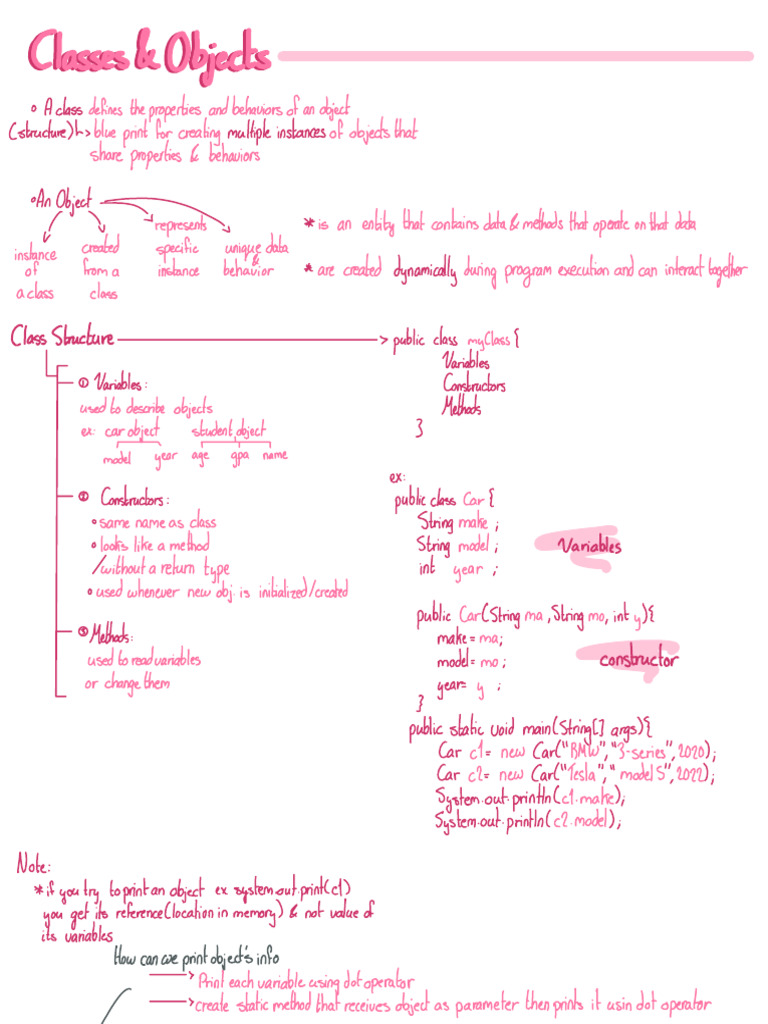 Classes & Objects
• A class defines the properties and behaviors of an object
(structure) ↳ blue print for creating multiple instances of objects that
share properties & behaviors
• An Object
instance of a class
created from a class
represents specific instance
unique data & behavior
* is an entity that contains data & methods that operate on that data
* are created dynamically during program execution and can interact together
Class Structure
① Variables:
used to describe objects
ex: car object student object
model year age gpa name
② Constructors:
• same name as class
• looks like a method
/without a return type
• used whenever new obj. is initialized/created
③ Methods:
used to read variables
or change them
public class myClass {
Variables
Constructors
Methods
}
ex:
public class Car {
String make ;
String model ;
int year ;
Variables
public Car(String ma, String mo, int y){
make = ma;
model = mo ;
year = y ;
}
constructor
public static void main(String[] args){
Car c1 = new Car("BMW", "3-series", 2020);
Car c2 = new Car("Tesla", "model S", 2022);
System.out.println(c1.make);
System.out.println(c2.model);
Note:
* if you try to print an object ex system.out.print(c1)
you get its reference (location in memory) & not value of
its variables
How can we print object's info
→ Print each variable using dot operator
→ create static method that receives object as parameter then prints it usin dot operator